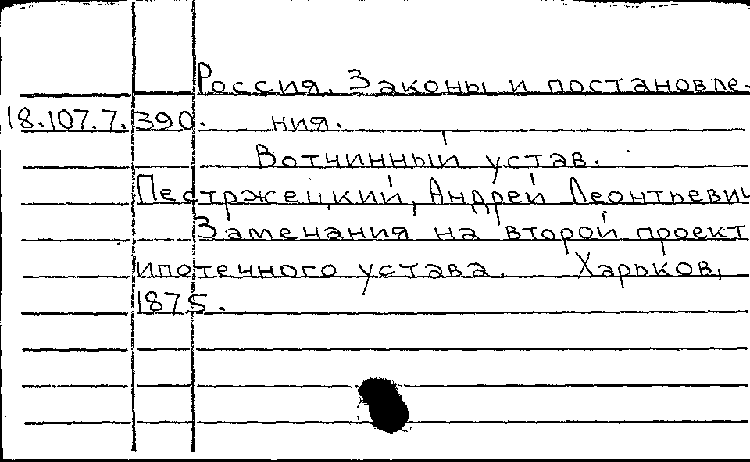 Россия. Законы и постановле-
18.107.7.390. ния.
Вотчинный устав.
Пестржецкий, Андрей Леонтьевич
Замечания на второй проект
ипотечного устава. Харьков,
1875.